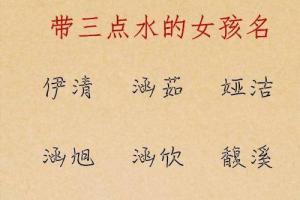 带三点水的女孩名
伊清 涵茹 娅洁
涵旭 涵欣 馥溪